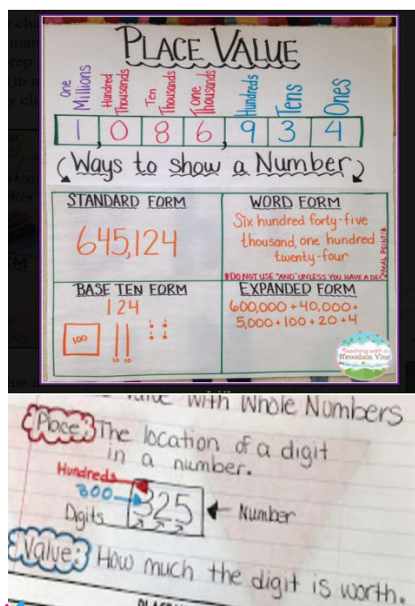 PLACE VALUE
One Millions
Hundred Thousands
Ten Thousands
One Thousands
Hundreds
Tens
Ones
1,086,934
Ways to show a Number
STANDARD FORM
645,124
WORD FORM
Six hundred forty-five
thousand, one hundred
twenty-four
DO NOT USE "AND" UNLESS YOU HAVE A DECIMAL POINT!
BASE TEN FORM
124
100
10 10
EXPANDED FORM
600,000 + 40,000 +
5,000 + 100 + 20 + 4
Teaching with a
Mountain View
Value with Whole Numbers
Place: The location of a digit
in a number.
Hundreds
300
325
Digits
Number
Value: How much the digit is worth.